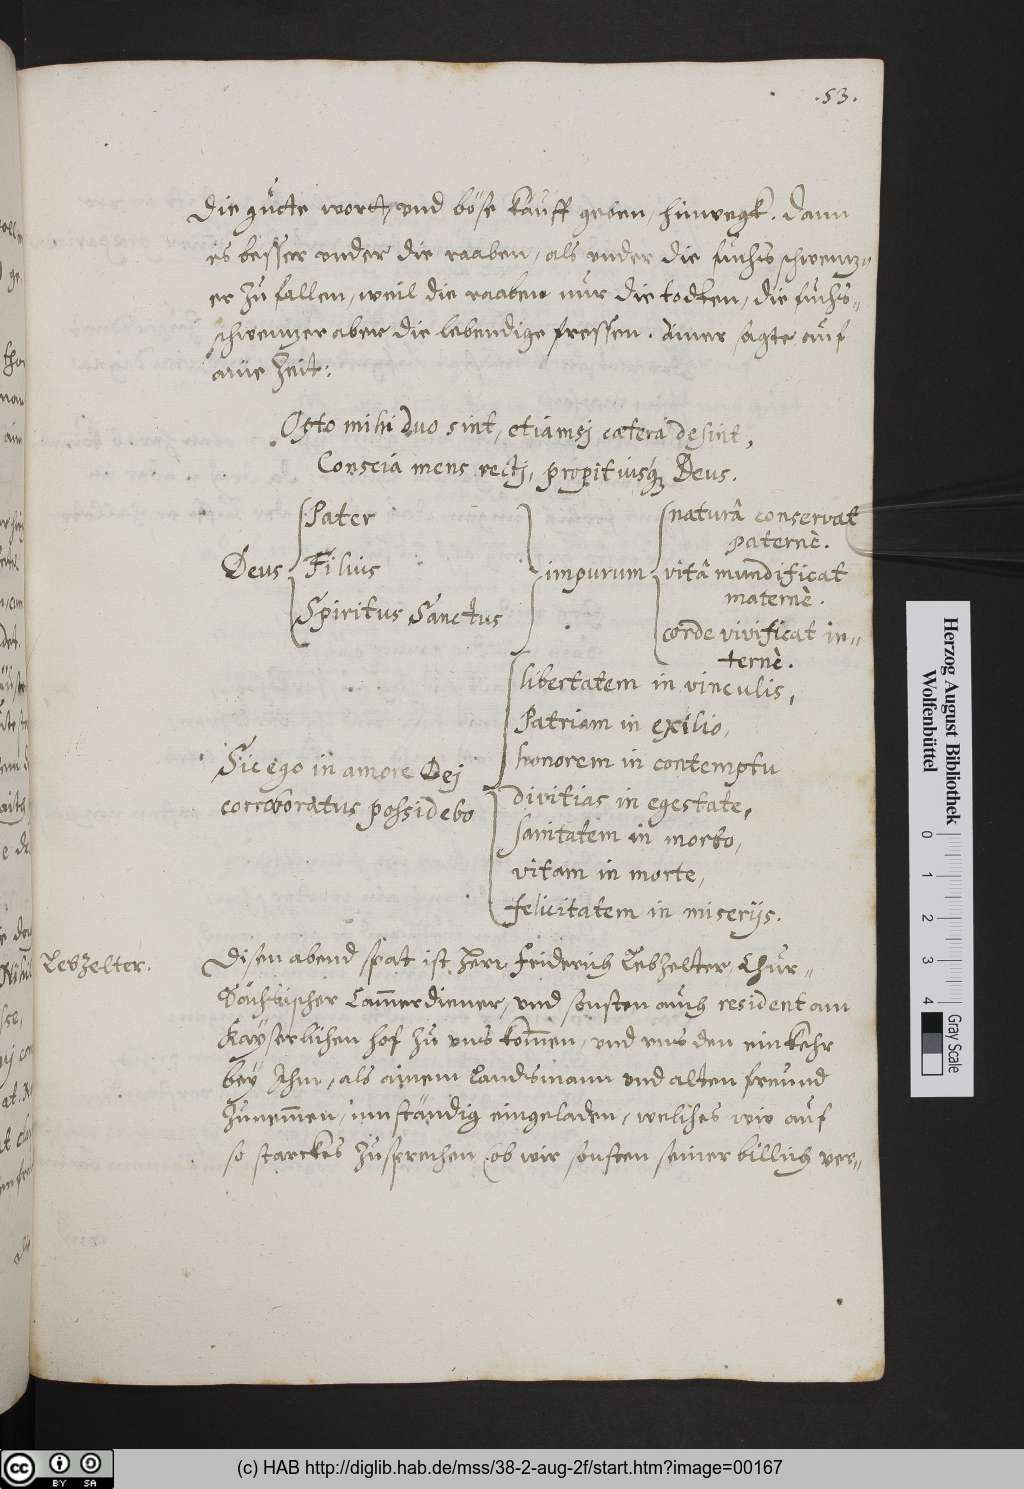 .53.
die guete wort, und böse kauff geben, hinwegk. dann
es besser under die raaben, als under die fuchsschwentz-
er zu fallen, weil die raaben nur die todten, die fuchs-
schwentzer aber die lebendige fressen. Ainer sagte auf
aine Zeit:
Opto mihi duo sint, etiamsj cætera desint,
Conscia mens rectj, propitiusq́ue Deus.
Deus
Pater
Filius
Spiritus Sanctus
impurum
naturâ conservat
paternè.
vitâ mundificat
maternè.
corde vivificat in-
ternè.
Sic ego in amore Dej
corroboratus possidebo
libertatem in vinculis,
Patriam in exilio,
honorem in contemptu
divitias in egestate,
sanitatem in morbo,
vitam in morte,
felicitatem in miserijs.
Lebzelter.
Disen abend spat ist Herr Friderich Lebzelter, Chur-
Sächsischer Cam̄erdiener, und sonsten auch resident am
Kayserlichen hof zu uns kom̄en, und uns den einkehr
bey Ihm, als ainem Landsmann und alten freund
zunem̄en, innständig eingeladen, welches wir auf
so starckes zusprechen (ob wir sonsten seiner billich ver-
Herzog August Bibliothek
Wolfenbüttel
0 1 2 3 4
Gray Scale
CC BY SA
(c) HAB http://diglib.hab.de/mss/38-2-aug-2f/start.htm?image=00167